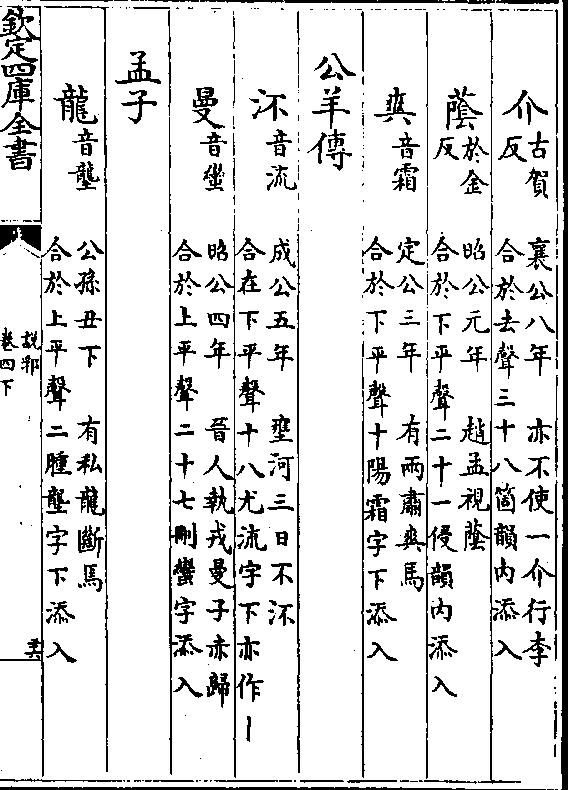 介古賀反　襄公八年　亦不使一介行李
合於去聲三十八箇韻内添入
蔭於金反　昭公元年　趙孟視蔭
合於下平聲二十一侵韻内添入
爽音霜　定公三年　有兩肅爽馬
合於下平聲十陽霜字下添入
公羊傳
沠音流　成公五年　壅河三日不沠
合在下平聲十八尤流字下亦作丨
曼音蠻　昭公四年　晉人執戎曼子赤歸
合於上平聲二十七刪蠻字添入
孟子
龍音壟　公孫丑下　有私龍斷焉
合於上平聲二腫壟字下添入
欽定四庫全書
説郛
卷四下